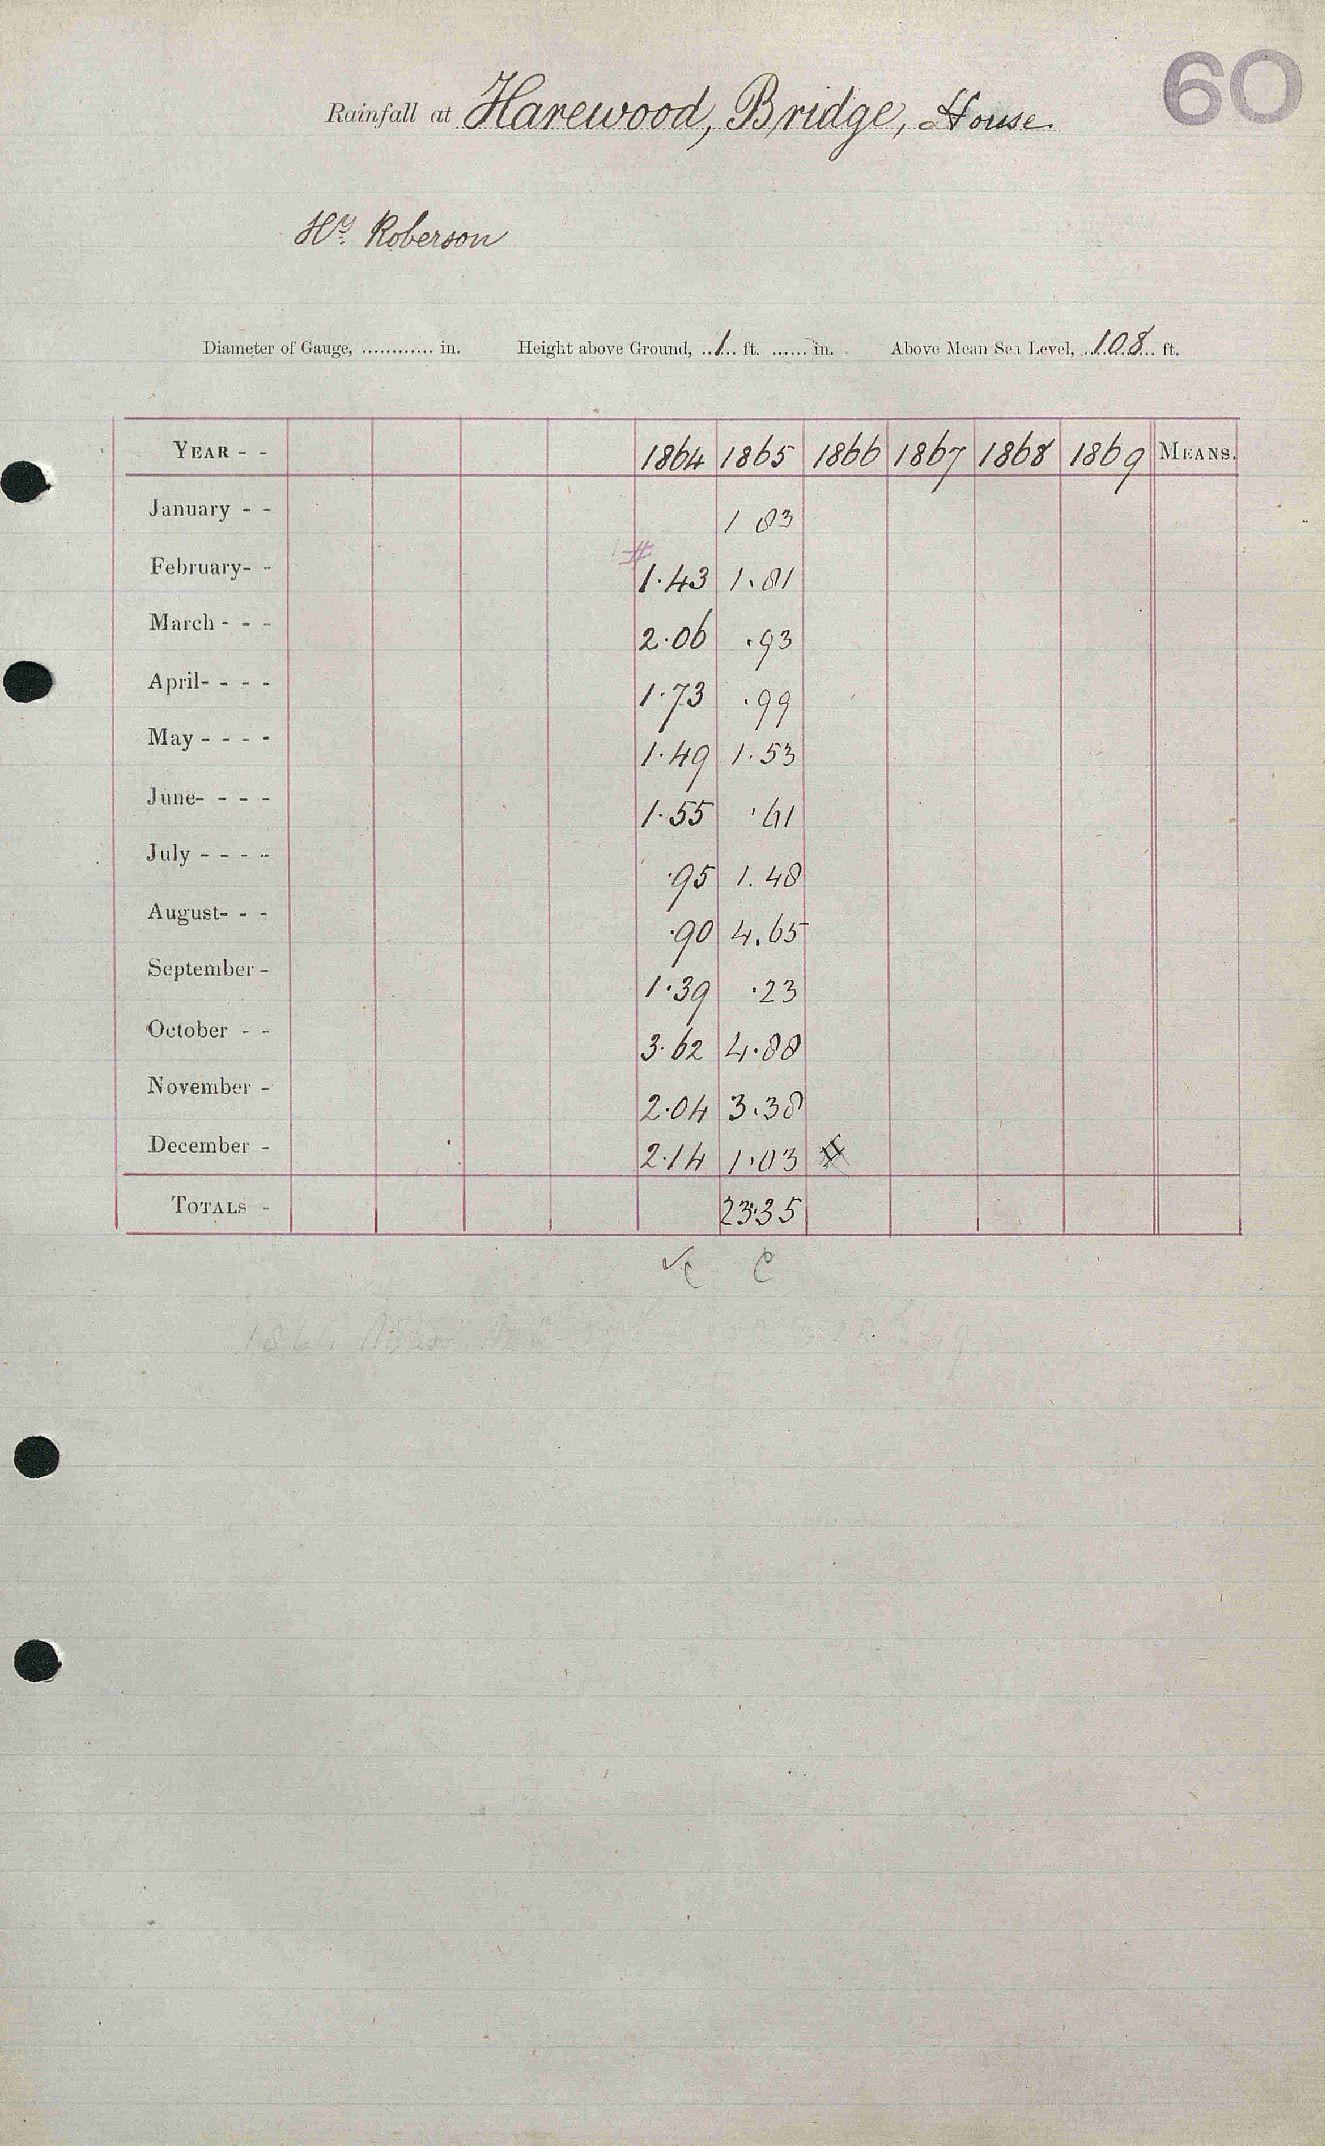 60
Rainfall at Harewood, Bridge, House
Hy. Roberson
Diameter of Gauge, ............ in. Height above Ground, ..1... ft. ...... in. Above Mean Sea Level, 108 ft.
YEAR - - 1864 1865 1866 1867 1868 1869 MEANS.
January - - 1 83
February- - # 1.43 1.81
March - - - 2.06 .93
April- - - - 1.73 .99
May - - - - 1.49 1.53
June- - - - 1.55 .61
July - - - - .95 1.48
August- - - .90 4.65
September - 1.39 .23
October - - 3.62 4.88
November - 2.04 3.38
December - 2.14 1.03 #
TOTALS - 23.35
✓c c